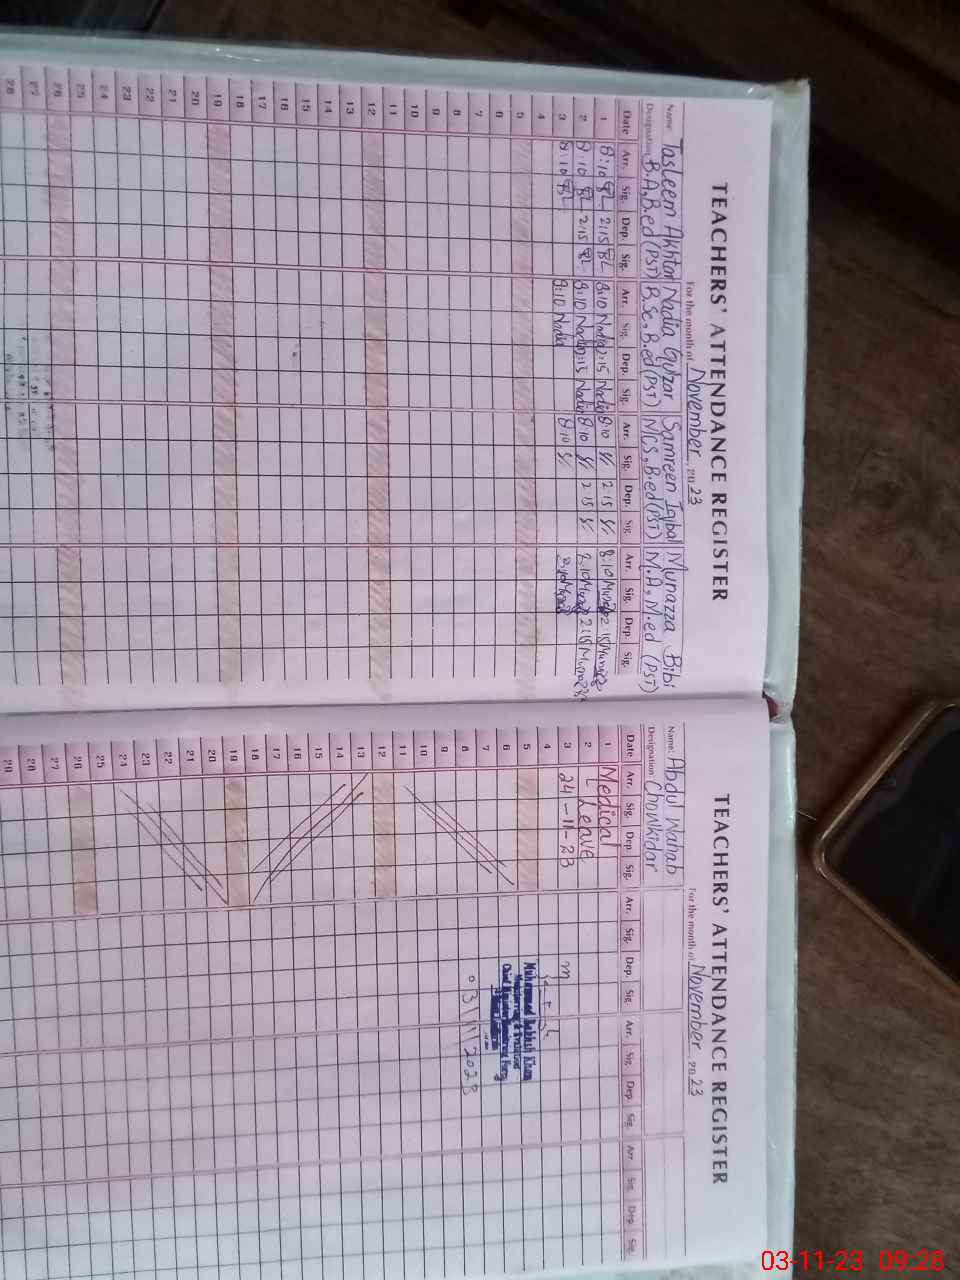 TEACHERS' ATTENDANCE REGISTER
For the month of November 2023
Name: Tasleem Akhtar Nadia Gulzar Samreen Iqbal Munazza Bibi
Designation: B.A, B.ed (PST) B.Sc, B.ed (PST) MCS, B.ed (PST) M.A, M.ed (PST)
Date Arr. Sig. Dep. Sig. Arr. Sig. Dep. Sig. Arr. Sig. Dep. Sig. Arr. Sig. Dep. Sig.
1 8:10 2:15 8:10 Nadia 2:15 Nadia 8:10 2:15 8:10 2:15
2 8:10 2:15 8:10 Nadia 2:15 Nadia 8:10 2:15 2:15
3 8:10 8:10 Nadia 8:10
4
5
6
7
8
9
10
11
12
13
14
15
16
17
18
19
20
21
22
23
24
25
26
27
28
TEACHERS' ATTENDANCE REGISTER
For the month of November 2023
Name: Abdul Wahab
Designation: Chowkidar
Date Arr. Sig. Dep. Sig. Arr. Sig. Dep. Sig. Arr. Sig. Dep. Sig. Arr. Sig. Dep. Sig.
1 Medical
2 Leave
3 24-11-23
4
5 Muhammad Khan
6
7
8 03/11/2023
9
10
11
12
13
14
15
16
17
18
19
20
21
22
23
24
25
26
27
28
29
03-11-23 09:28